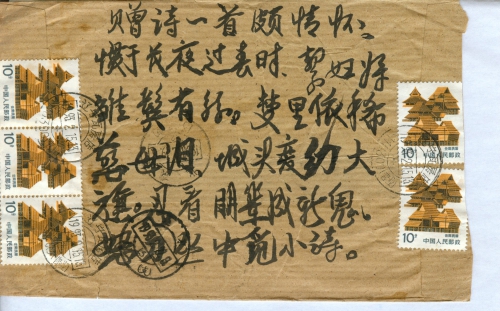 赠诗一首颇情怀、
惯于长夜过春时、挈妇将
雏鬓有丝。梦里依稀
慈母泪、城头变幻大
旗。忍看朋辈成新鬼、
中觅小诗。
10分
中国人民邮政
10分
中国人民邮政
10分
中国人民邮政
10分
中国人民邮政
10分
中国人民邮政